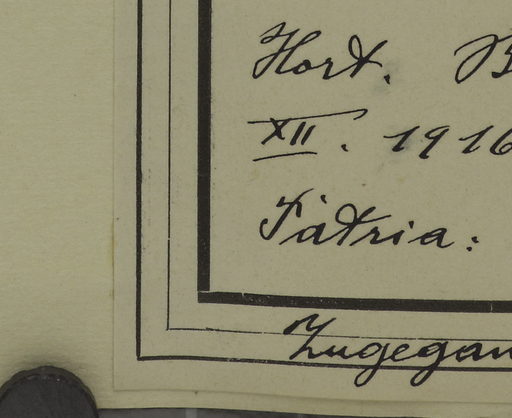 Hort. B
XII. 1916
Patria:
Zugegan